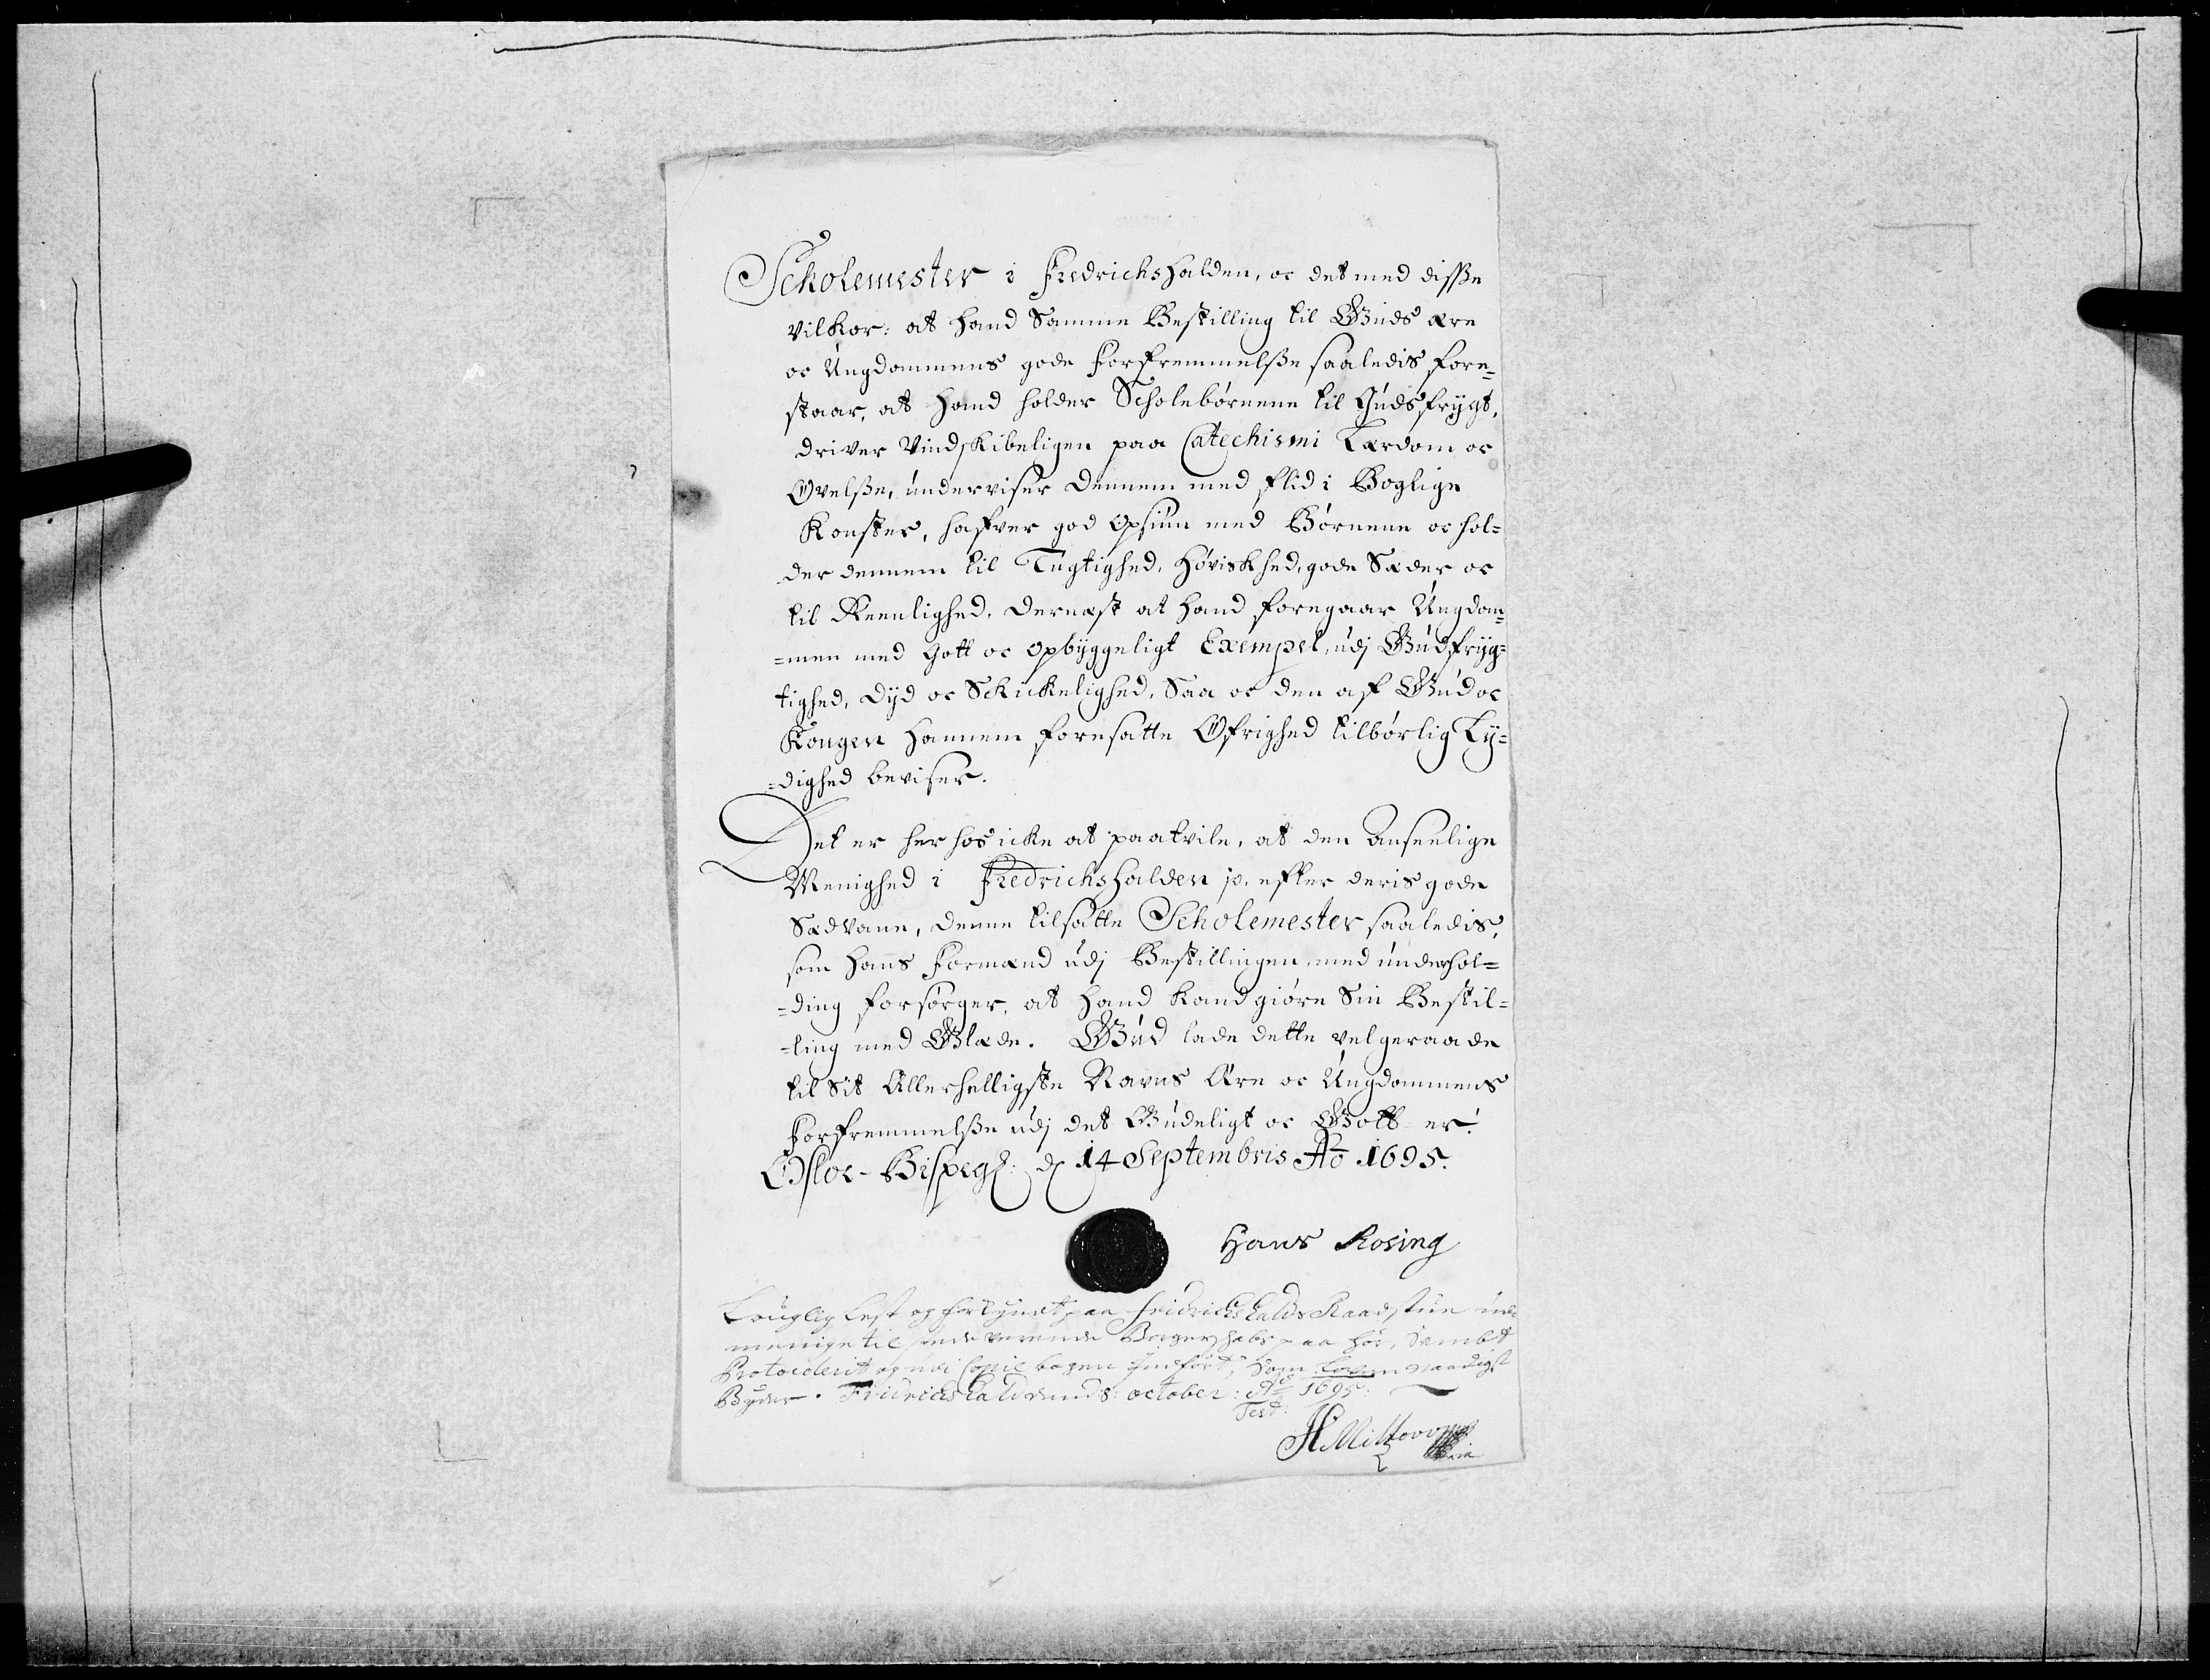 Scholemester i Fredrichshalden, oc det med disse
vilkor: at hand Samme Bestilling til Guds ære
oc Ungdommens gode forfremmelsse saaledis fore-
staar, at hand holder Scholebørnene til Gudsfrygt,
driver Vindskibeligen paa Catechismi Lærdom oc
Øvelsse, underviser dennem med flid i Boglige
Konster, hafver god Opsiun med Børnene oc hol=
der dennem til Tugtighed, høviskhed, gode Sæder oc
til Reenlighed. Dernæst at hand foregaar Ungdom=
=men med Gott oc opbyggeligt Exempel, udj Gudfryg=
tighed, dyd oc Skickelighed, Saa oc den af Gud oc
Kongen hannem foresatte Øfrighed tilbørlig Ly=
=dighed beviser.
Det er her hos icke at paatvile, at den Anseelige
Menighed i Fredrichshalden jo, efter deris gode
Sædvane, denne tilsatte Scholemester saaledis,
som hans Formænd udj Bestillingen, med underhol=
=ding forsørger, at hand kand giøre Sin Bestil=
=ling med Glæde. Gud lade dette vel geraade
til Sit Allerhelligste Navns Ære oc Ungdommens
Forfremmelsse udj det Gudeligt oc Gott er.
Osloe-Bispeg: d 14 Septembris Ao 1695.
Hans Rosing
Louglig lest og forkyndt paa Fridrichshalds Raadstue
menige til stede værende Borgerskabs paa hør, Sambt
Protocolerit og udi Copie bogen indført, Som Loven naadigst
Byder. Fridrichshald October: Ao 1695.
Test: